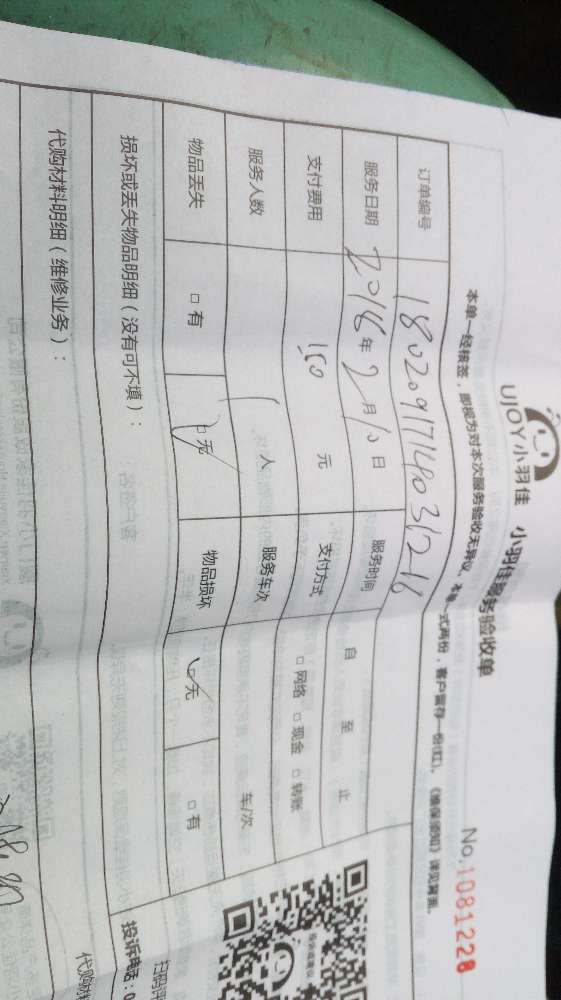 UJOY小羽佳 小羽佳服务验收单
No.1081228
本单一经核签，即视为对本次服务验收无异议。本单一式两份，客户留存一份(红)。《维保须知》详见背面。
订单编号 1802091714031216
服务日期 2018年2月10日 服务时间 自 至 止
支付费用 150 元 支付方式 □网络 □现金 □转账
服务人数 1 人 服务车次 车/次
物品丢失 □有 □无 物品损坏 □无 □有
损坏或丢失物品明细（没有可不填）：
投诉电话：0
代购材料明细（维修业务）：
代购材